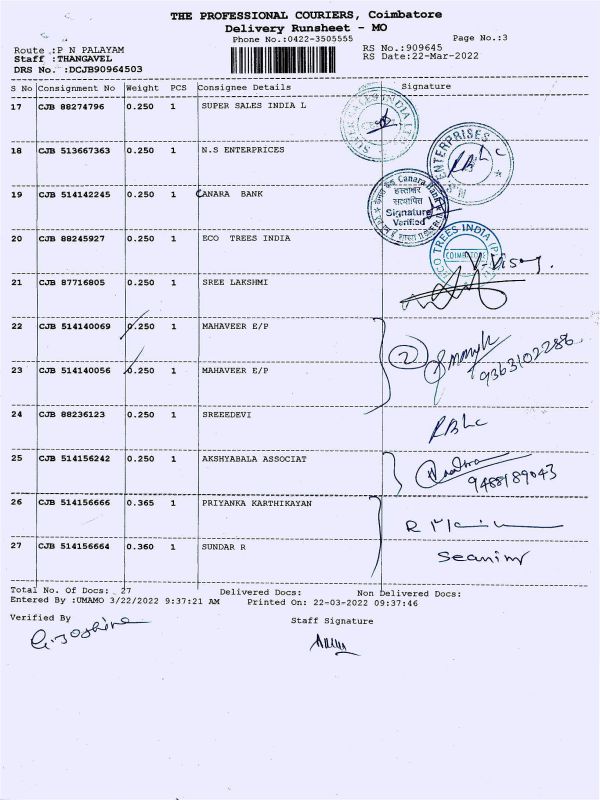 THE PROFESSIONAL COURIERS, Coimbatore
Delivery Runsheet - MO
Phone No.:0422-3505555
Page No.:3
Route :P N PALAYAM
RS No.:909645
Staff :THANGAVEL
RS Date:22-Mar-2022
DRS No. :DCJB90964503
S No Consignment No Weight PCS Consignee Details Signature
17 CJB 88274796 0.250 1 SUPER SALES INDIA L
18 CJB 513667363 0.250 1 N.S ENTERPRICES
ENTERPRISES
19 CJB 514142245 0.250 1 CANARA BANK
Canara Bank
हस्ताक्षर
सत्यापित
Signature
Verified
20 CJB 88245927 0.250 1 ECO TREES INDIA
ECO TREES INDIA (P)
COIMBATORE
21 CJB 87716805 0.250 1 SREE LAKSHMI
22 CJB 514140069 0.250 1 MAHAVEER E/P
2
9363102286
23 CJB 514140056 0.250 1 MAHAVEER E/P
24 CJB 88236123 0.250 1 SREEEDEVI
25 CJB 514156242 0.250 1 AKSHYABALA ASSOCIAT
9488189043
26 CJB 514156666 0.365 1 PRIYANKA KARTHIKAYAN
27 CJB 514156664 0.360 1 SUNDAR R
Total No. Of Docs: 27 Delivered Docs: Non Delivered Docs:
Entered By :UMAMO 3/22/2022 9:37:21 AM Printed On: 22-03-2022 09:37:46
Verified By Staff Signature